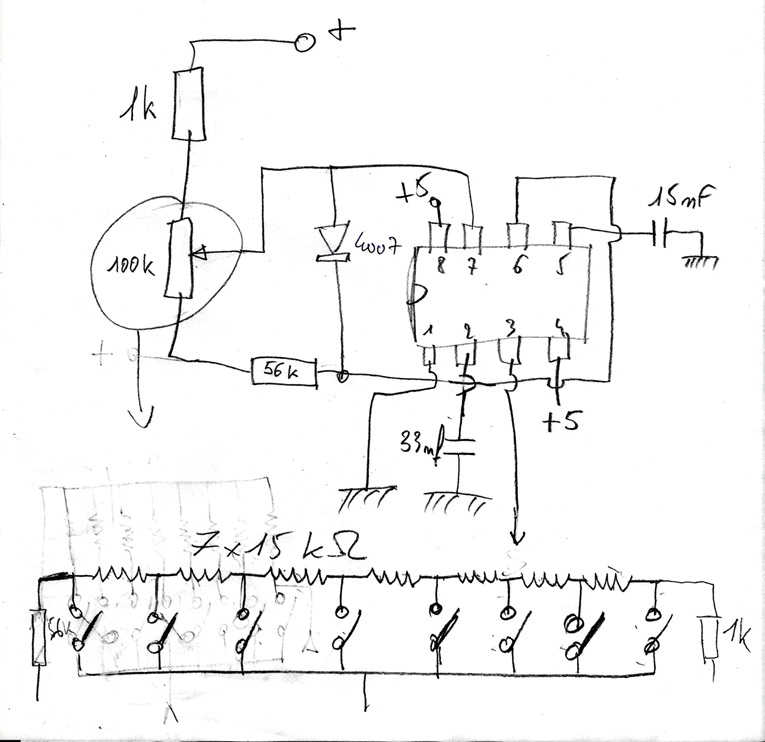 +
1k
+5
15nF
8 7 6 5
100k
4007
1 2 3 4
+
56k
+5
33nf
7x15kΩ
56k
1k